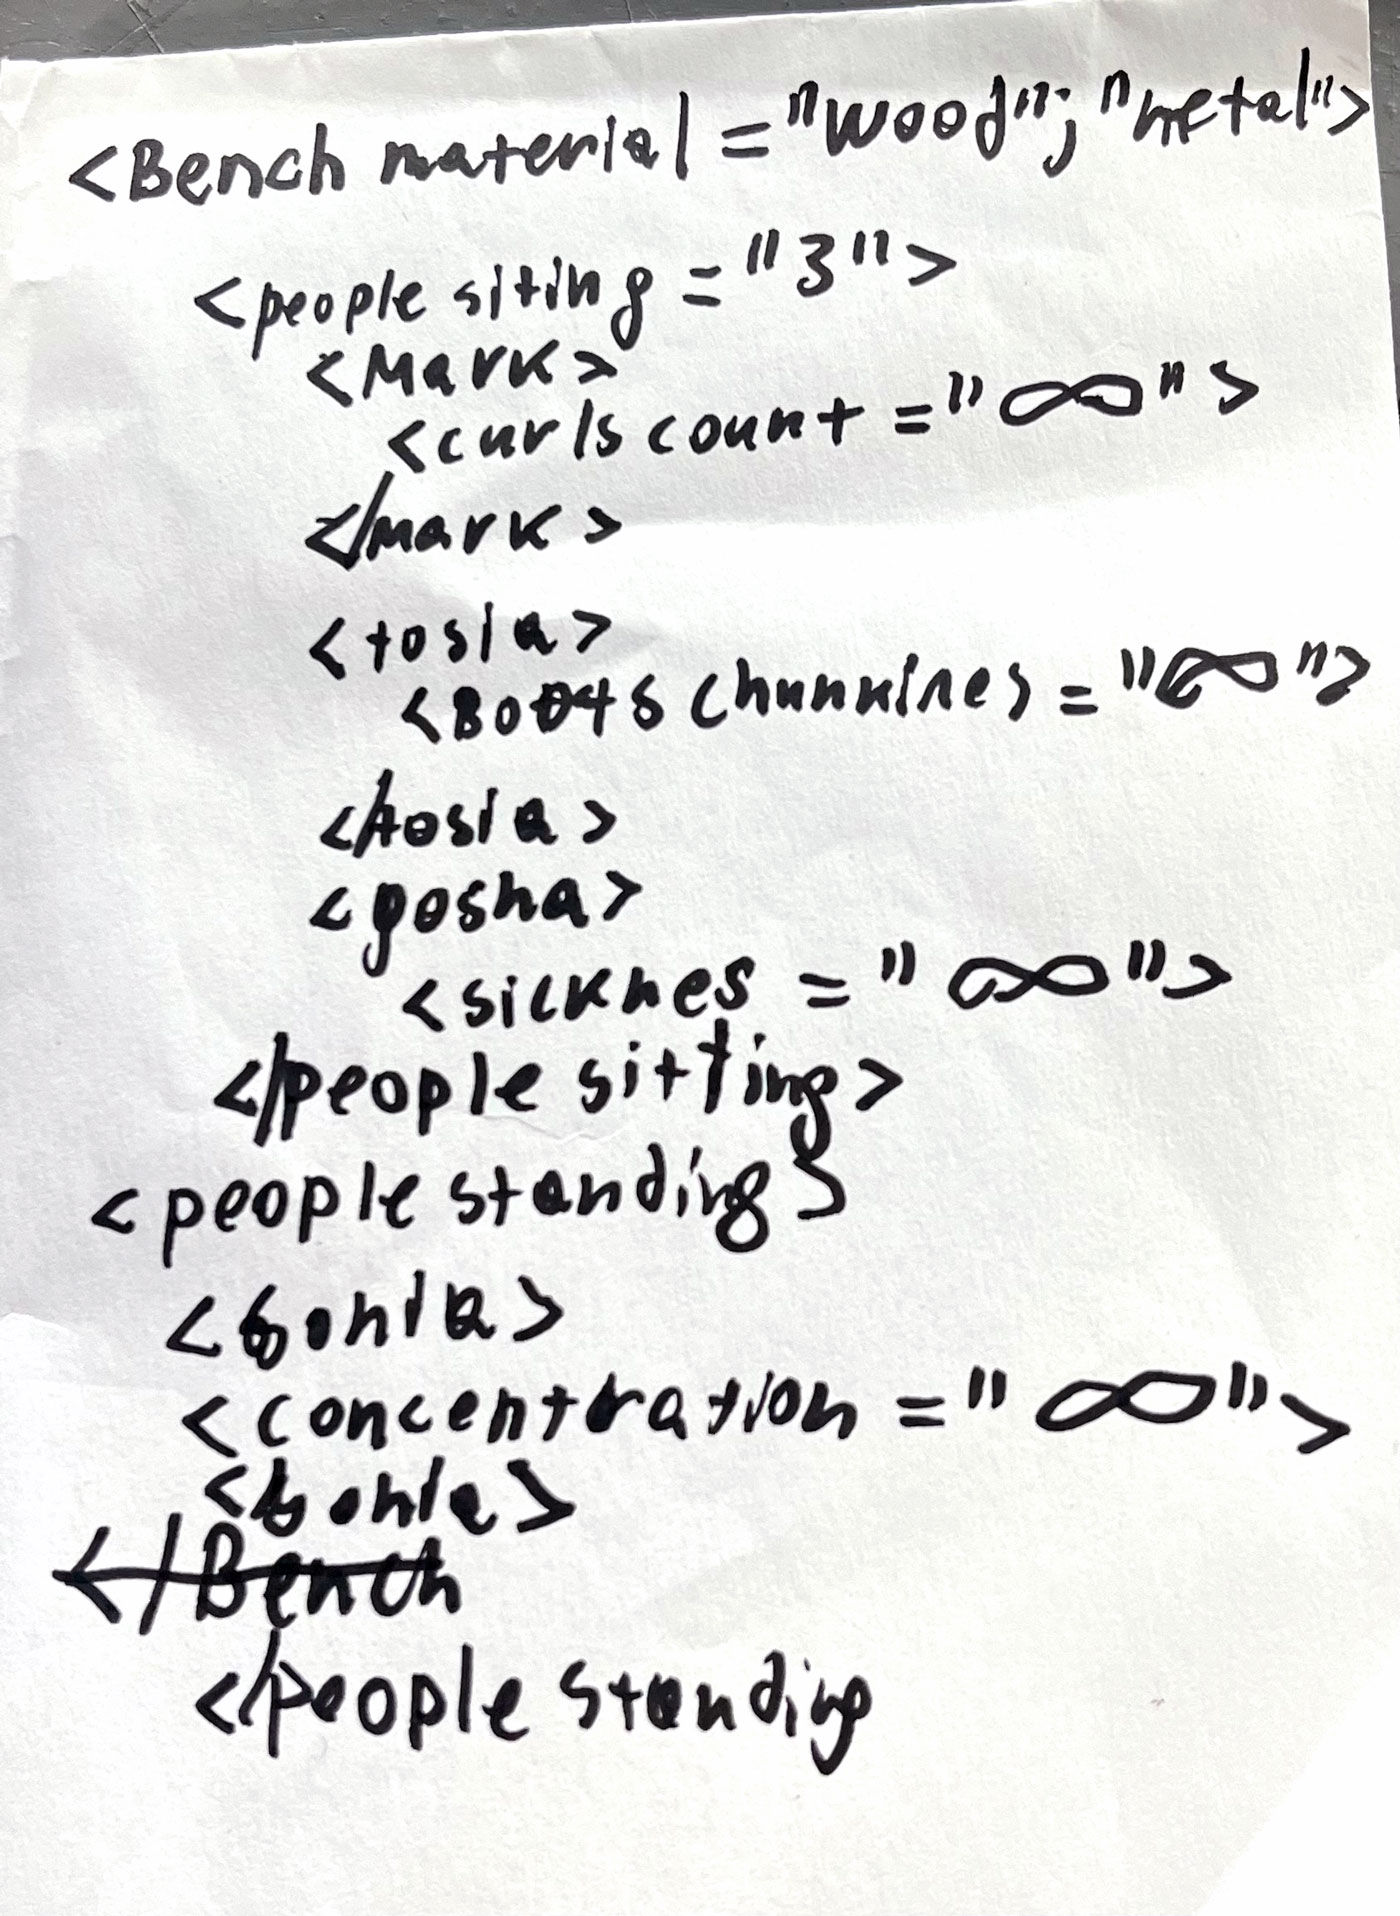 <Bench material = "wood"; "metal">
<people siting = "3">
<Mark>
<curls count = "∞">
</mark>
<tosia>
<Boots chunkines = "∞">
</tosia>
<gosha>
<sicknes = "∞">
</people sitting>
<people standing>
<sonia>
<concentration = "∞">
<sonia>
</Bench
</people standing